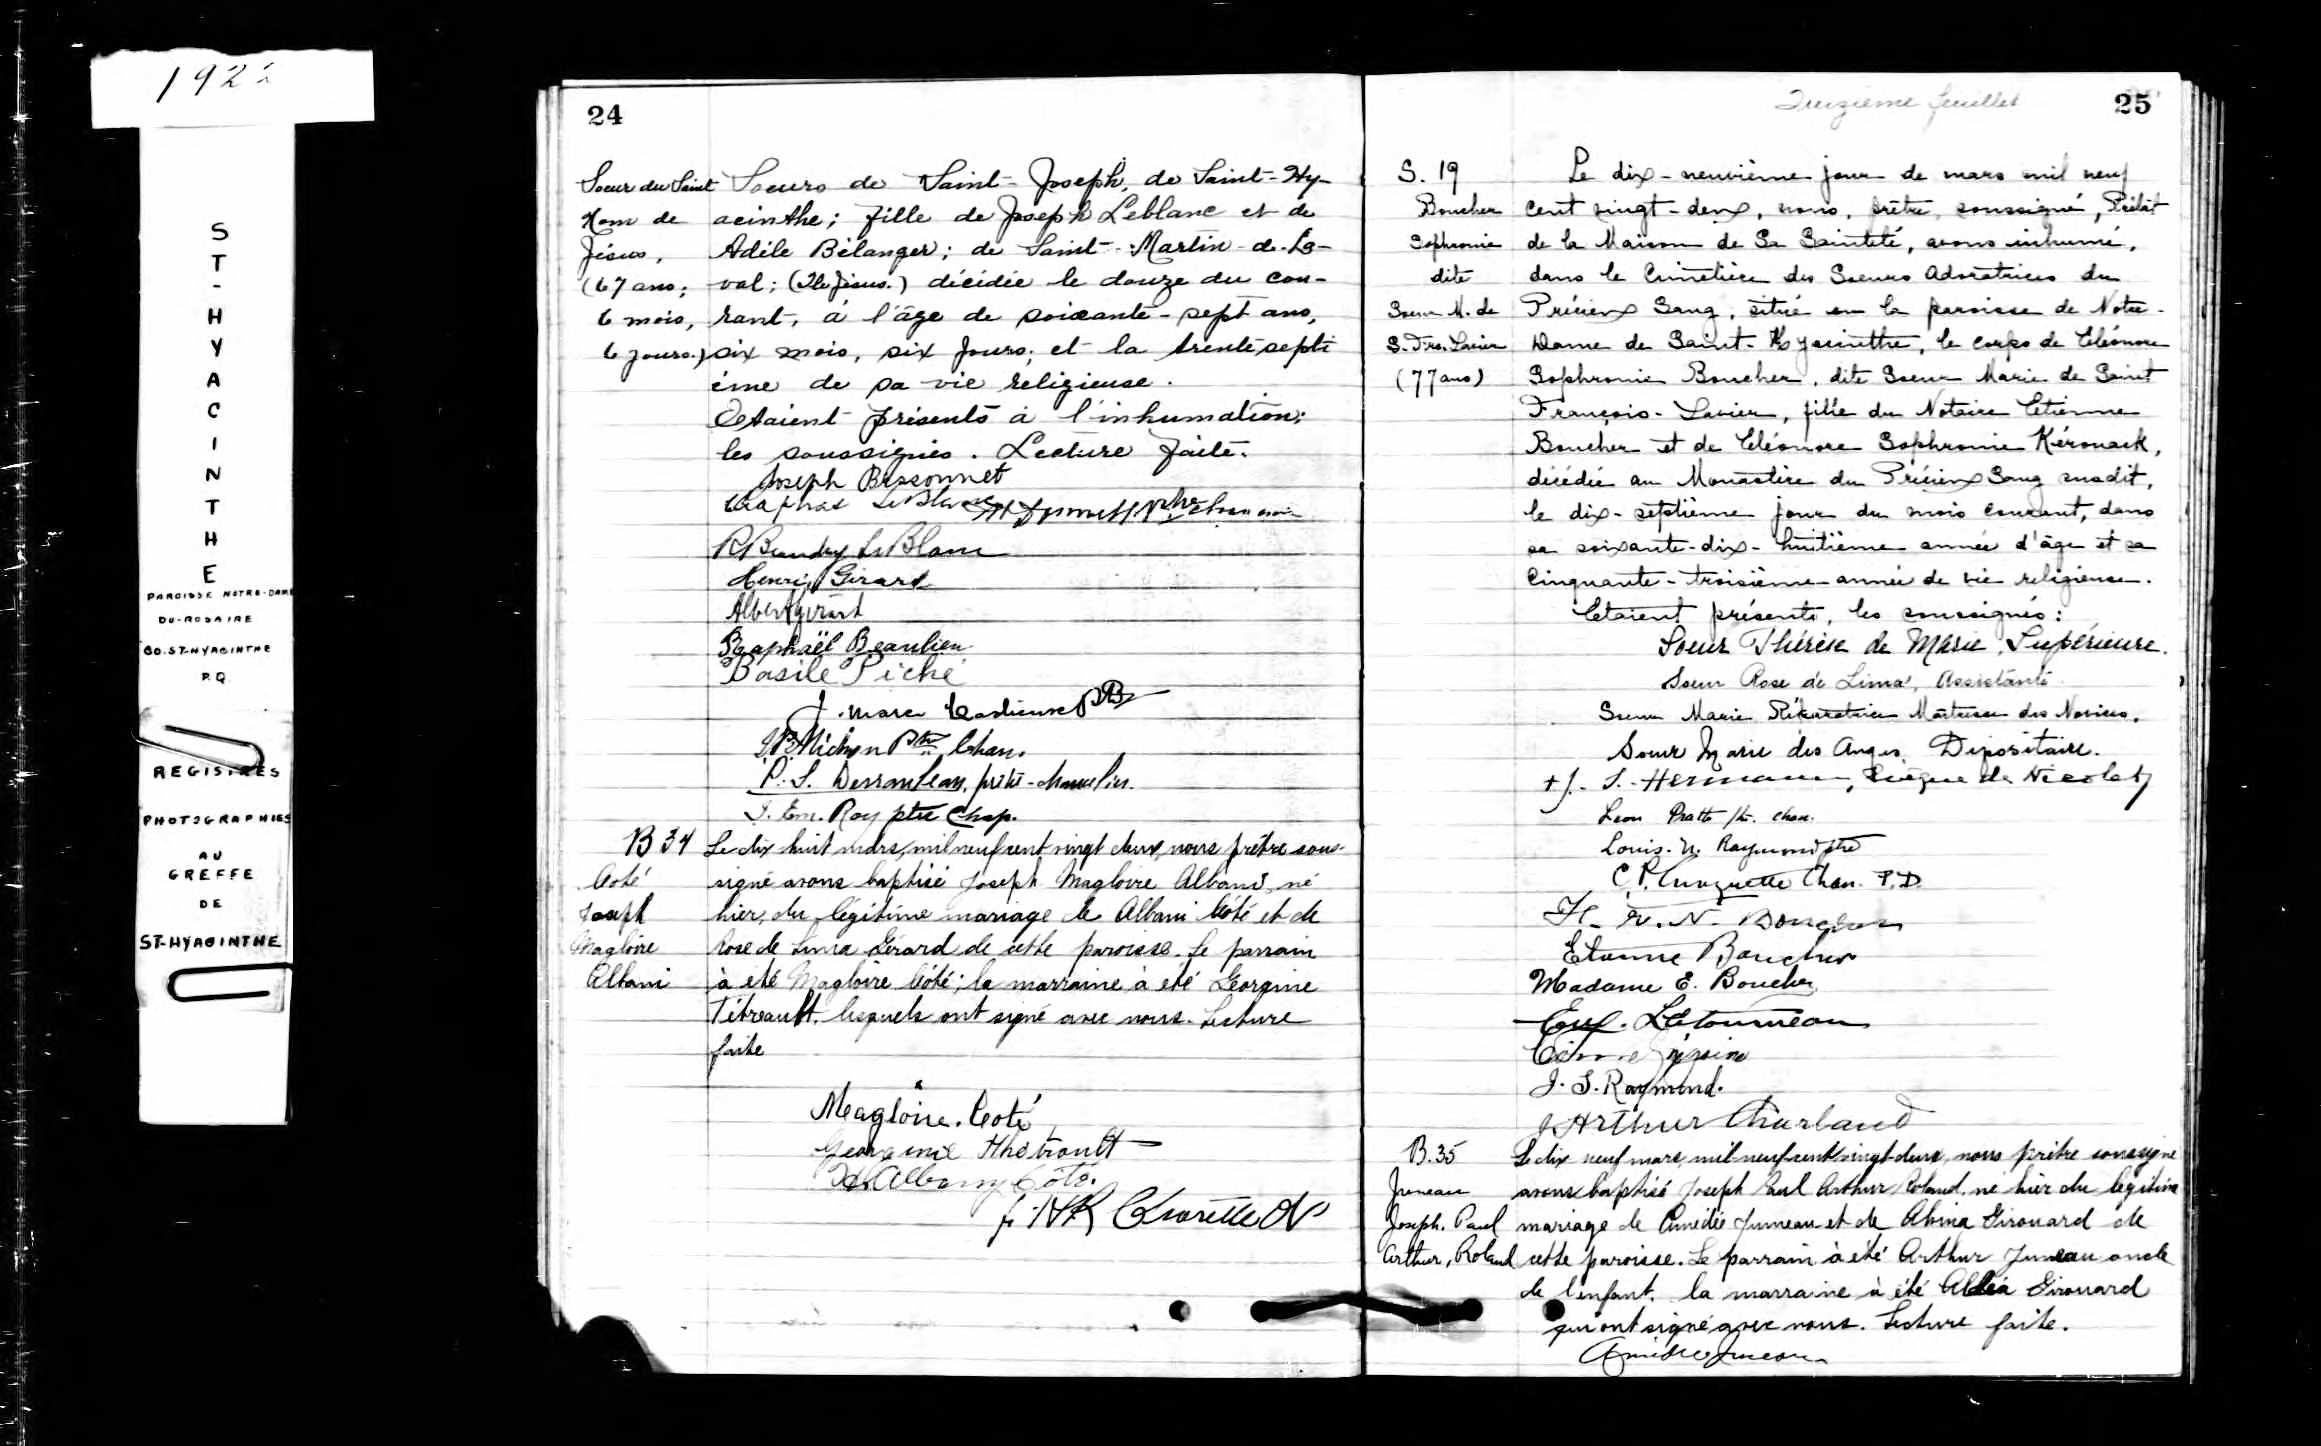 1922
ST-HYACINTHE
PAROISSE NOTRE-DAME
DU-ROSAIRE
CO. ST-HYACINTHE
P.Q
REGISTRES
PHOTOGRAPHIES
AU
GREFFE
DE
ST-HYACINTHE
24
Soeur du Saint
Nom de
Jésus,
(67 ans;
6 mois,
6 jours.)
Soeurs de Saint-Joseph, de Saint-Hy-
acinthe; fille de Joseph Leblanc et de
Adèle Bélanger; de Saint-Martin-de-La-
val; (Ile Jésus.) décédée le douze du cou-
rant, à l'âge de soixante-sept ans,
six mois, six jours; et la trente septi
ème de sa vie religieuse.
Etaient présents à l'inhumation:
les soussignés. Lecture faite.
Joseph Bissonnet
R Beaudry LeBlanc
Henri Girard
Albert Girard
Raphaël Beaulieu
Basile Piché
J. Marc
J.B. Michon Ptre Chan.
P. S. Desranleau, prêtre-chancelier.
J. Em. Roy ptre Chap.
B 34
Coté
Joseph
Magloire
Albani
Le dix huit mars, mil neuf cent vingt deux, nous prêtre sous-
signé avons baptisé Joseph Magloire Albani, né
hier, du légitime mariage de Albani Côté et de
Rose de Lima Gérard de cette paroisse. Le parrain
à été Magloire Côté; la marraine à été Georgine
Tétreault, lesquels ont signé avec nous. Lecture
faite
Magloire. Coté
Georginie Thetrault
Albany Côté.
25
S. 19
Boucher
Sophronie
dite
Soeur M. de
S. Frs. Xavier
(77 ans)
Le dix-neuvième jour de mars mil neuf
cent vingt-deux, nous, prêtre, soussigné, Prélat
de la Maison de Sa Sainteté, avons inhumé,
dans le Cimetière des Soeurs Adoratrices du
Précieux Sang, situé en la paroisse de Notre-
Dame de Saint-Hyacinthe, le corps de Eléonore
Sophronie Boucher, dite Soeur Marie de Saint
François-Xavier, fille du Notaire Etienne
Boucher et de Eléonore Sophronie Kérouack,
décédée au Monastère du Précieux Sang susdit,
le dix-septième jour du mois courant, dans
sa soixante-dix-huitième année d'âge et sa
cinquante-troisième année de vie religieuse.
Etaient présents, les soussignés:
Soeur Thérèse de Marie, Supérieure.
Soeur Rose de Lima, Assistante
Soeur Marie Réparatrice Maîtresse des Novices.
Soeur Marie des Anges, Dépositaire.
+ J.-S.-Hermann, Evêque de Nicolet
Leon Pratte ptr. chan.
Louis. N. Raymond ptre
C. P. Choquette Chan. P.D.
Etienne Boucher
Madame E. Boucher
Letourneau
J. S. Raymond.
J Arthur Charland
B. 35
Juneau
Joseph. Paul
Arthur, Roland
Le dix neuf mars, mil neuf cent vingt-deux, nous prêtre soussigné
avons baptisé Joseph Paul Arthur Roland, né hier du légitime
mariage de Amédée Juneau et de Alvina Girouard de
cette paroisse. Le parrain à été Arthur Juneau oncle
de l'enfant. la marraine à été Girouard
qui ont signé avec nous. Lecture faite.
Amédée Juneau